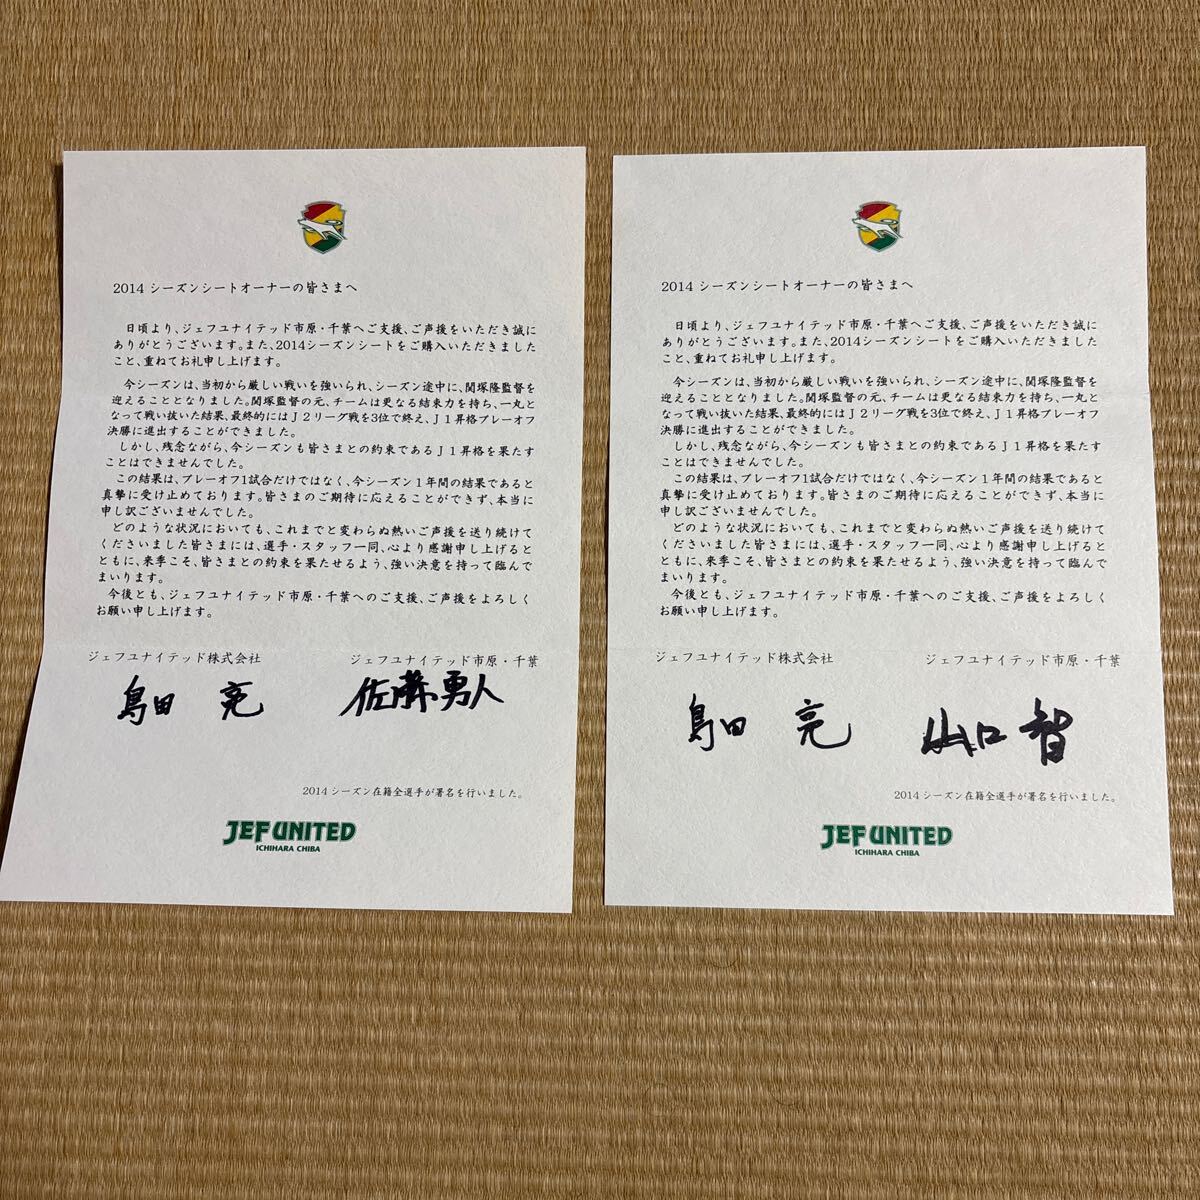 2014 シーズンシートオーナーの皆さまへ
日頃より、ジェフユナイテッド市原・千葉へご支援、ご声援をいただき誠に
ありがとうございます。また、2014シーズンシートをご購入いただきました
こと、重ねてお礼申し上げます。
今シーズンは、当初から厳しい戦いを強いられ、シーズン途中に、関塚隆監督を
迎えることとなりました。関塚監督の元、チームは更なる結束力を持ち、一丸と
なって戦い抜いた結果、最終的にはJ2リーグ戦を3位で終え、J1昇格プレーオフ
決勝に進出することができました。
しかし、残念ながら、今シーズンも皆さまとの約束であるJ1昇格を果たす
ことはできませんでした。
この結果は、プレーオフ1試合だけではなく、今シーズン1年間の結果であると
真摯に受け止めております。皆さまのご期待に応えることができず、本当に
申し訳ございませんでした。
どのような状況においても、これまでと変わらぬ熱いご声援を送り続けて
くださいました皆さまには、選手・スタッフ一同、心より感謝申し上げると
ともに、来季こそ、皆さまとの約束を果たせるよう、強い決意を持って臨んで
まいります。
今後とも、ジェフユナイテッド市原・千葉へのご支援、ご声援をよろしく
お願い申し上げます。
ジェフユナイテッド株式会社
ジェフユナイテッド市原・千葉
島田 亮
佐藤勇人
2014 シーズン在籍全選手が署名を行いました。
JEF UNITED
ICHIHARA CHIBA
2014 シーズンシートオーナーの皆さまへ
日頃より、ジェフユナイテッド市原・千葉へご支援、ご声援をいただき誠に
ありがとうございます。また、2014シーズンシートをご購入いただきました
こと、重ねてお礼申し上げます。
今シーズンは、当初から厳しい戦いを強いられ、シーズン途中に、関塚隆監督を
迎えることとなりました。関塚監督の元、チームは更なる結束力を持ち、一丸と
なって戦い抜いた結果、最終的にはJ2リーグ戦を3位で終え、J1昇格プレーオフ
決勝に進出することができました。
しかし、残念ながら、今シーズンも皆さまとの約束であるJ1昇格を果たす
ことはできませんでした。
この結果は、プレーオフ1試合だけではなく、今シーズン1年間の結果であると
真摯に受け止めております。皆さまのご期待に応えることができず、本当に
申し訳ございませんでした。
どのような状況においても、これまでと変わらぬ熱いご声援を送り続けて
くださいました皆さまには、選手・スタッフ一同、心より感謝申し上げると
ともに、来季こそ、皆さまとの約束を果たせるよう、強い決意を持って臨んで
まいります。
今後とも、ジェフユナイテッド市原・千葉へのご支援、ご声援をよろしく
お願い申し上げます。
ジェフユナイテッド株式会社
ジェフユナイテッド市原・千葉
島田 亮
山口 智
2014 シーズン在籍全選手が署名を行いました。
JEF UNITED
ICHIHARA CHIBA